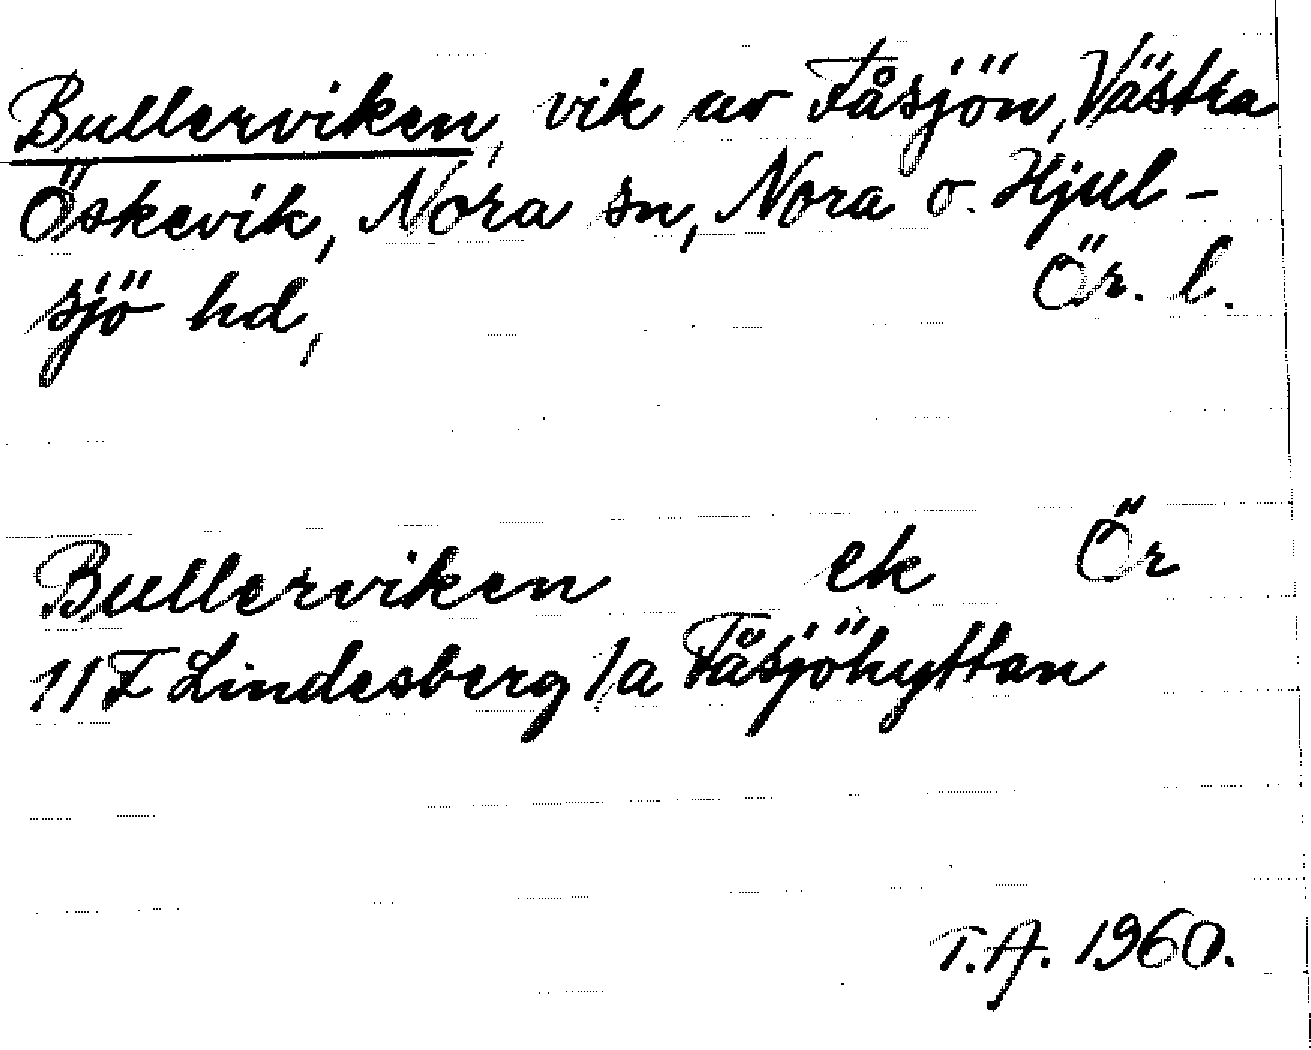 Bullerviken, vik av Fåsjön, Västra
Öskevik, Nora sn, Nora o. Hjul-
sjö hd, Ör. l.
Bullerviken ek Ör
11F Lindesberg 1a Fåsjöhyttan
T.A. 1960.